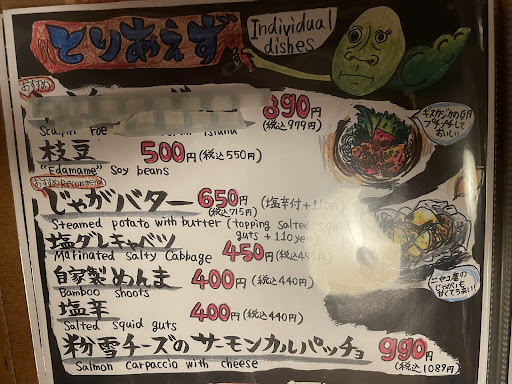 とりあえず
Individual
dishes
おすすめ
890円
(税込979円)
Sculpin roe
island
ギスカジカの卵
プチプチして
おいしい
枝豆 500円 (税込550円)
"Edamame" Soy beans
おすすめ Recommend
じゃがバター 650円 (塩辛付+110円)
(税込715円)
Steamed potato with butter (topping salted squid
guts + 110yen)
塩ダレキャベツ 450円 (税込495円)
Marinated Salty Cabbage
自家製めんま 400円 (税込440円)
Bamboo shoots
ニセコ産の
じゃがいも
甘くてうまい!
塩辛 400円 (税込440円)
Salted squid guts
粉雪チーズのサーモンカルパッチョ 990円
(税込1089円)
Salmon carpaccio with cheese